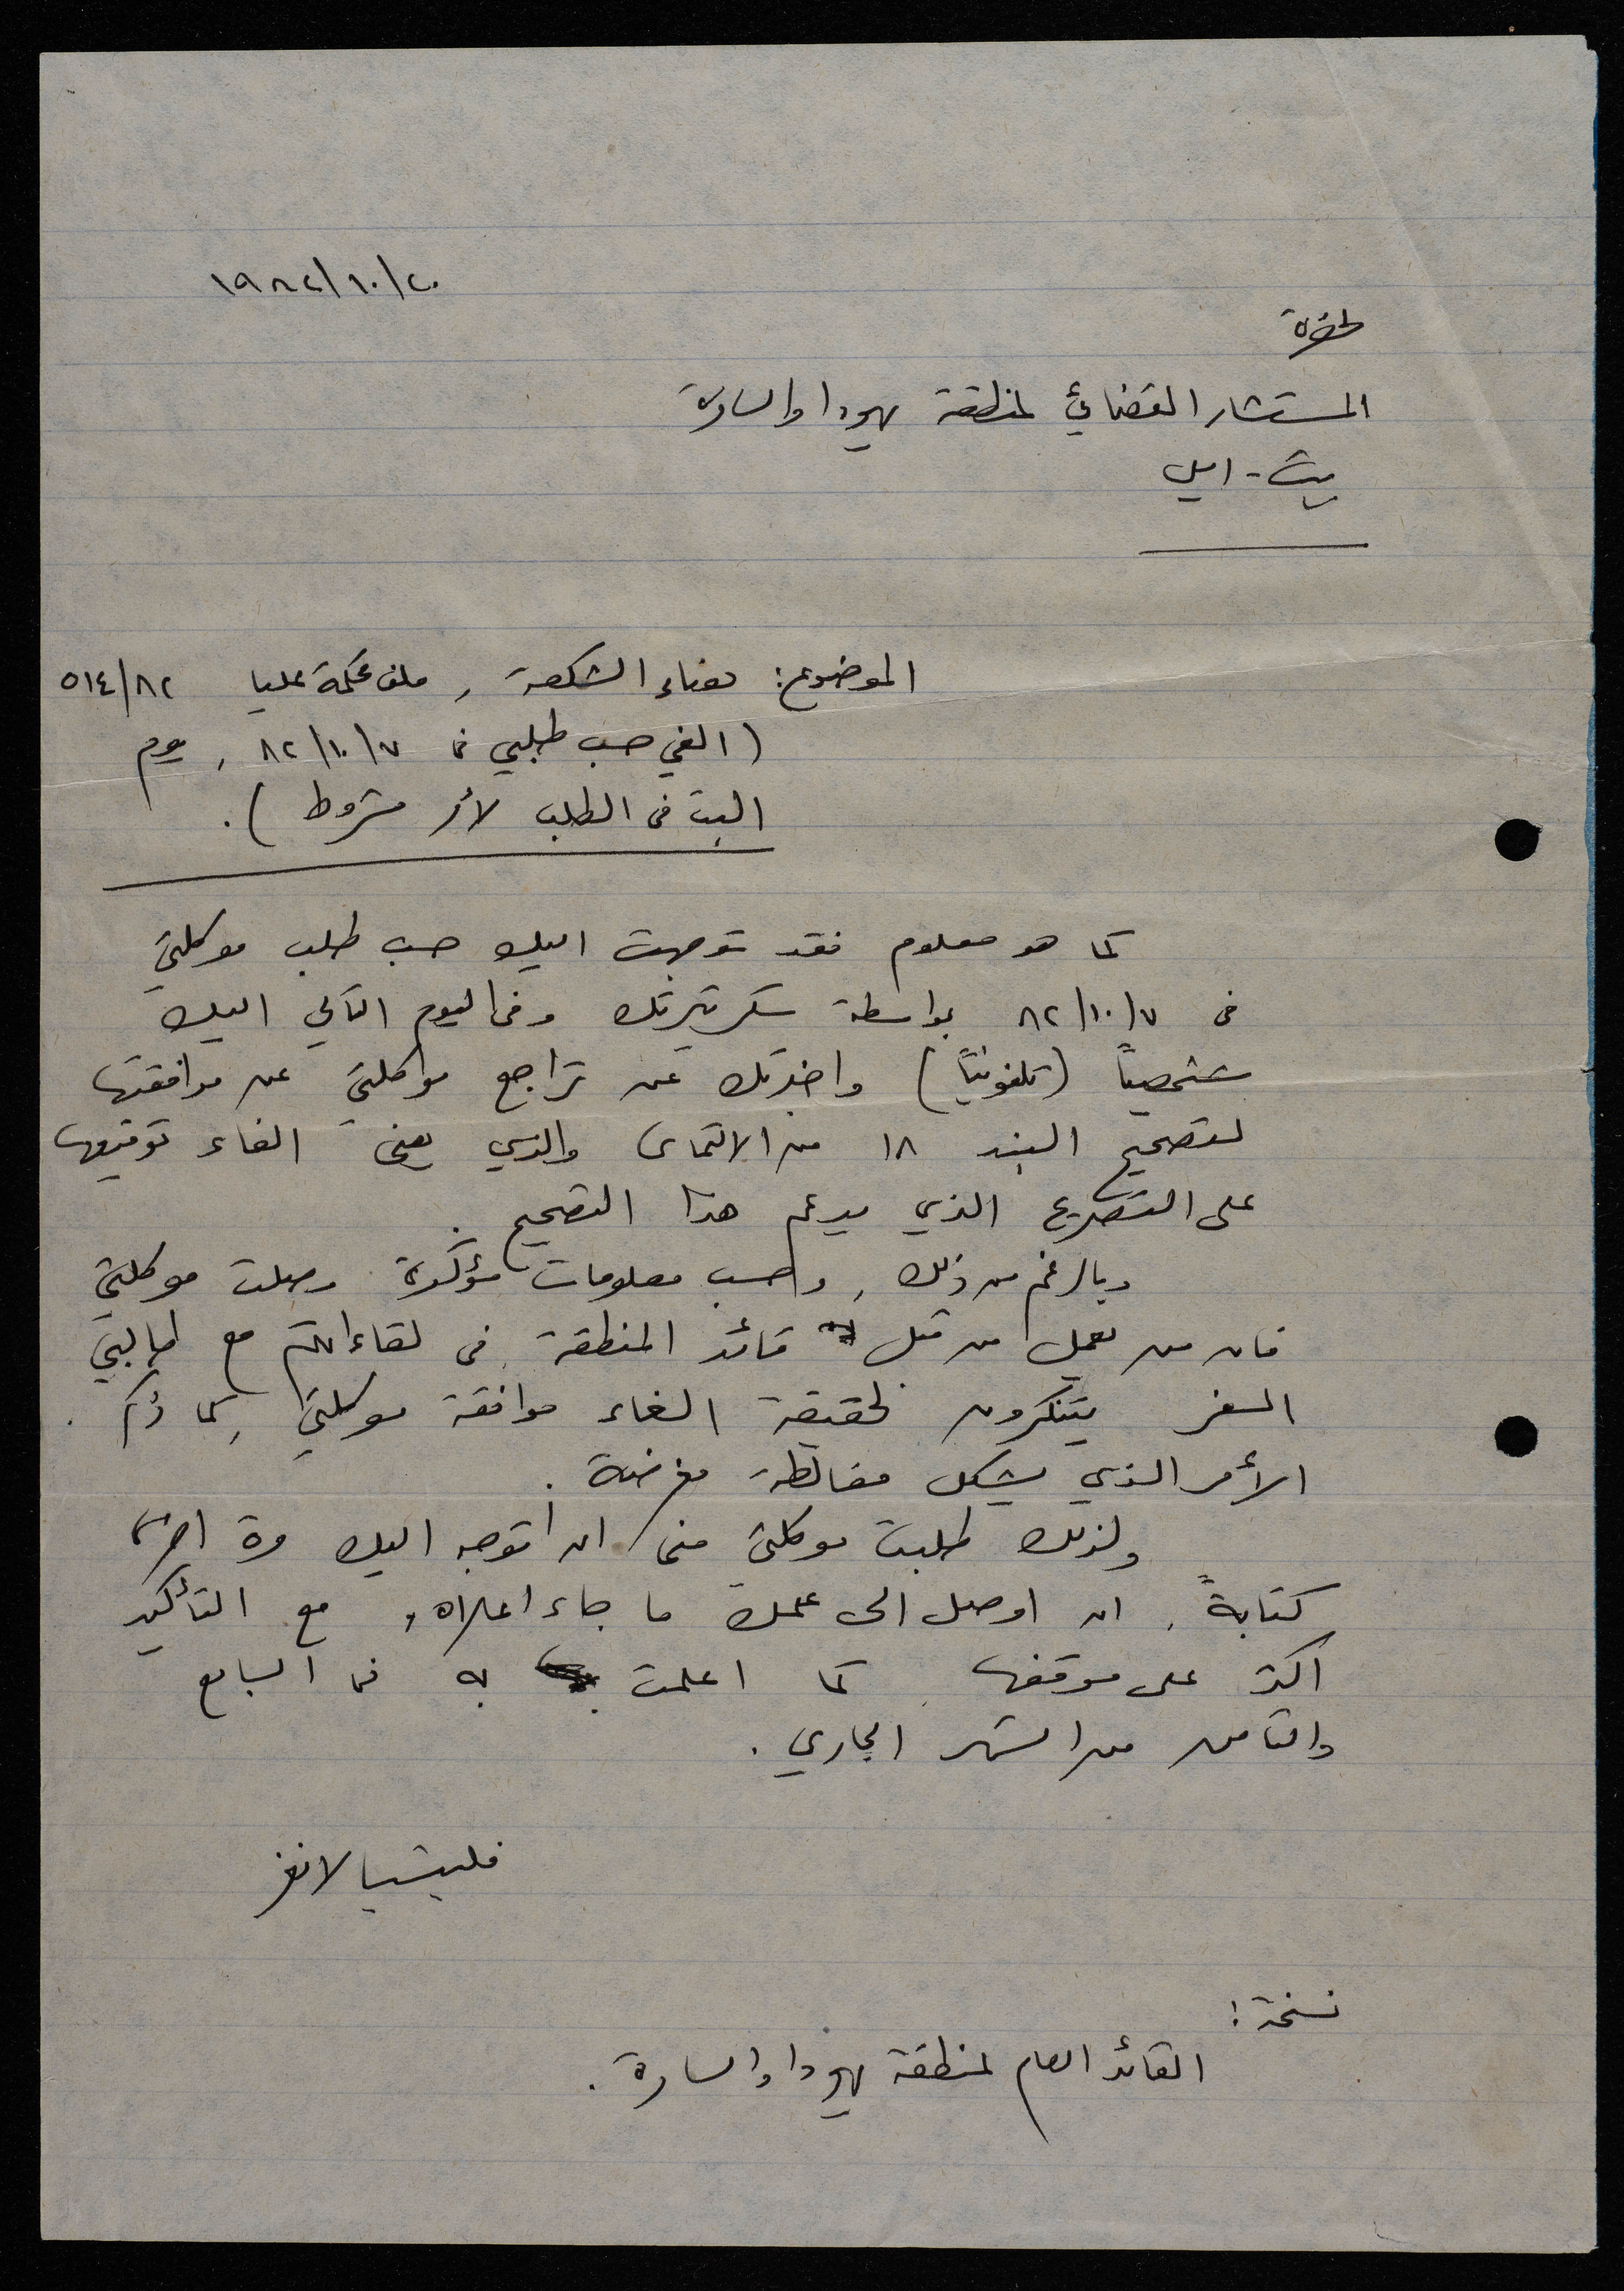 ١٩٨٢/١٠/٢٠
لحضرة
المستشار القضائي لمنطقة يهودا والسامرة
بيت - ايل
الموضوع: هناء الشكعة , ملف محكمة عليا ٥١٤/٨٢
( الغي حسب طلبي في ٨٢/١٠/٧ , يوم
البت في الطلب لأمر مشروط ) .
كما هو معلوم فقد توجهت اليك حسب طلب موكلتي
في ٨٢/١٠/٧ بواسطة سكرتيرتك وفي اليوم التالي اليك
شخصياً (تلفونياً) واخبرتك عن تراجع موكلتي عن موافقتها
لتصحيح البند ١٨ من الالتماس والذي يعني الغاء توقيعها
على التصريح الذي يدعم هذا التصحيح .
وبالرغم من ذلك , وحسب معلومات مؤكدة وصلت موكلتي
فان من يعمل من قبل قائد المنطقة في لقاءاتكم مع طالبي
السفر يتنكرون لحقيقة الغاء موافقة موكلتي , كما ذكر .
الأمر الذي يشكل مغالطة مغرضة .
ولذلك طلبت موكلتي مني ان اتوجه اليك مرة اخرى
كتابةً , ان اوصل الى علمك ما جاء اعلاه , مع التأكيد
اكثر على موقفها كما اعلمت به في السابع
والثامن من الشهر الجاري .
فليتسيا لانغر
نسخة :
القائد العام لمنطقة يهودا والسامرة .